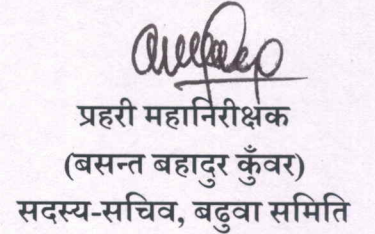 प्रहरी महानिरीक्षक
(बसन्त बहादुर कुँवर)
सदस्य-सचिव, बढुवा समिति